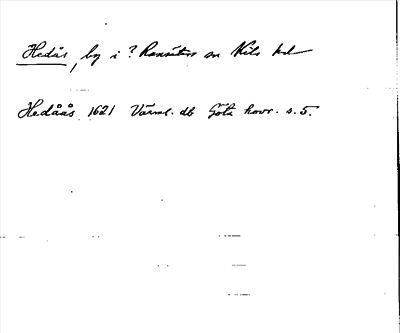 Hedås, by i ? Ransäters sn Kils hd
Hedåås 1621 Värml. db Göta hovr. s. 5.